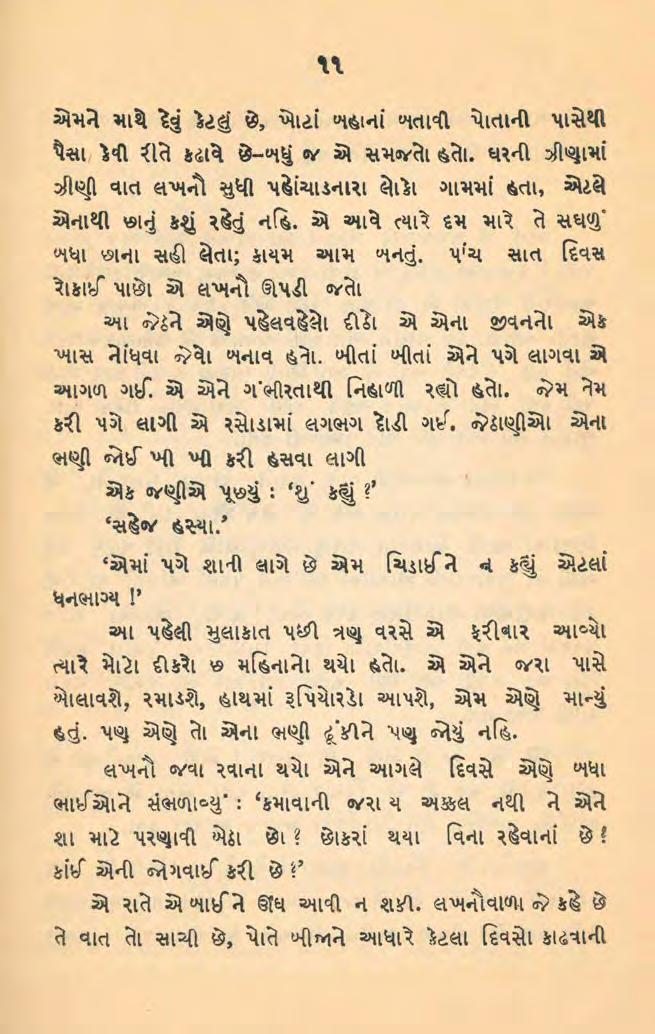 ૧૧
એમને માથે દેવું કેટલું છે, ખોટાં બહાનાં બતાવી પોતાની પાસેથી
પૈસા કેવી રીતે કઢાવે છે–બધું જ એ સમજતો હતો. ઘરની ઝીણામાં
ઝીણી વાત લખનૌ સુધી પહોંચાડનારા લોકો ગામમાં હતા, એટલે
એનાથી છાનું કશું રહેતું નહિ. એ આવે ત્યારે દમ મારે તે સઘળું
બધા છાના સહી લેતા; કાયમ આમ બનતું. પાંચ સાત દિવસ
રોકાઈ પાછો એ લખનૌ ઊપડી જતો
આ જેઠને એણે પહેલવહેલો દીઠો એ એના જીવનનો એક
ખાસ નોંધવા જેવો બનાવ હતો. બીતાં બીતાં એને પગે લાગવા એ
આગળ ગઈ. એ એને ગંભીરતાથી નિહાળી રહ્યો હતો. જેમ તેમ
કરી પગે લાગી એ રસોડામાં લગભગ દોડી ગઈ. જેઠાણીઓ એના
ભણી જોઈ ખી ખી કરી હસવા લાગી
એક જણીએ પૂછ્યું : ‘શું કહ્યું ?’
‘સહેજ હસ્યા.’
‘એમાં પગે શાની લાગે છે એમ ચિડાઈને ન કહ્યું એટલાં
ધનભાગ્ય !’
આ પહેલી મુલાકાત પછી ત્રણ વરસે એ ફરીવાર આવ્યો
ત્યારે મોટો દીકરો છ મહિનાનો થયો હતો. એ એને જરા પાસે
બોલાવશે, રમાડશે, હાથમાં રૂપિયોરડો આપશે, એમ એણે માન્યું
હતું. પણ એણે તો એના ભણી ઢૂંકીને પણ જોયું નહિ.
લખનૌ જવા રવાના થયો એને આગલે દિવસે એણે બધા
ભાઈઓને સંભળાવ્યું : ‘કમાવાની જરા ય અક્કલ નથી ને એને
શા માટે પરણાવી બેઠા છો ? છોકરાં થયા વિના રહેવાનાં છે ?
કાંઈ એની જોગવાઈ કરી છે ?’
એ રાતે એ બાઈને ઊંઘ આવી ન શકી. લખનૌવાળા જે કહે છે
તે વાત તો સાચી છે, પોતે બીજાને આધારે કેટલા દિવસો કાઢવાની